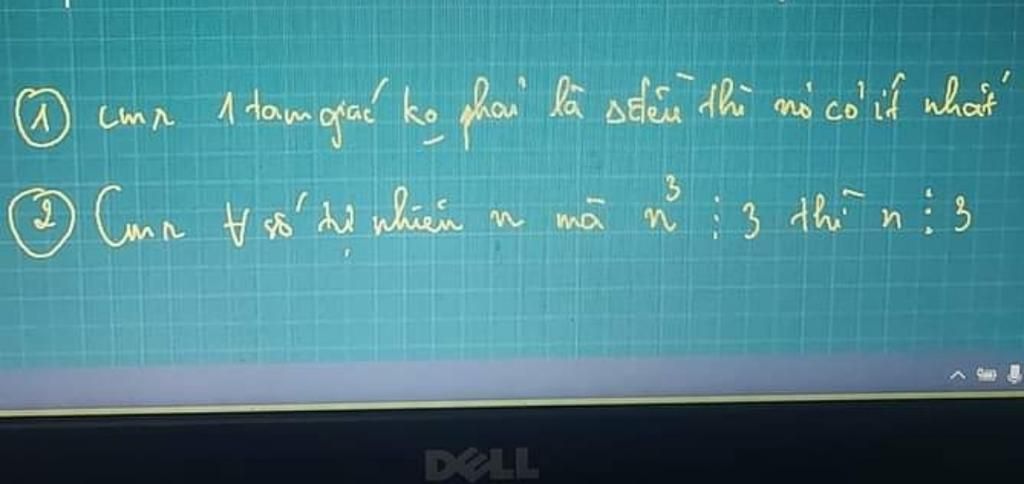 ① cmr 1 tam giác ko phải là Δ đều thì nó có ít nhất
② Cmr ∀ số tự nhiên n mà n³ ⋮ 3 thì n ⋮ 3
DELL